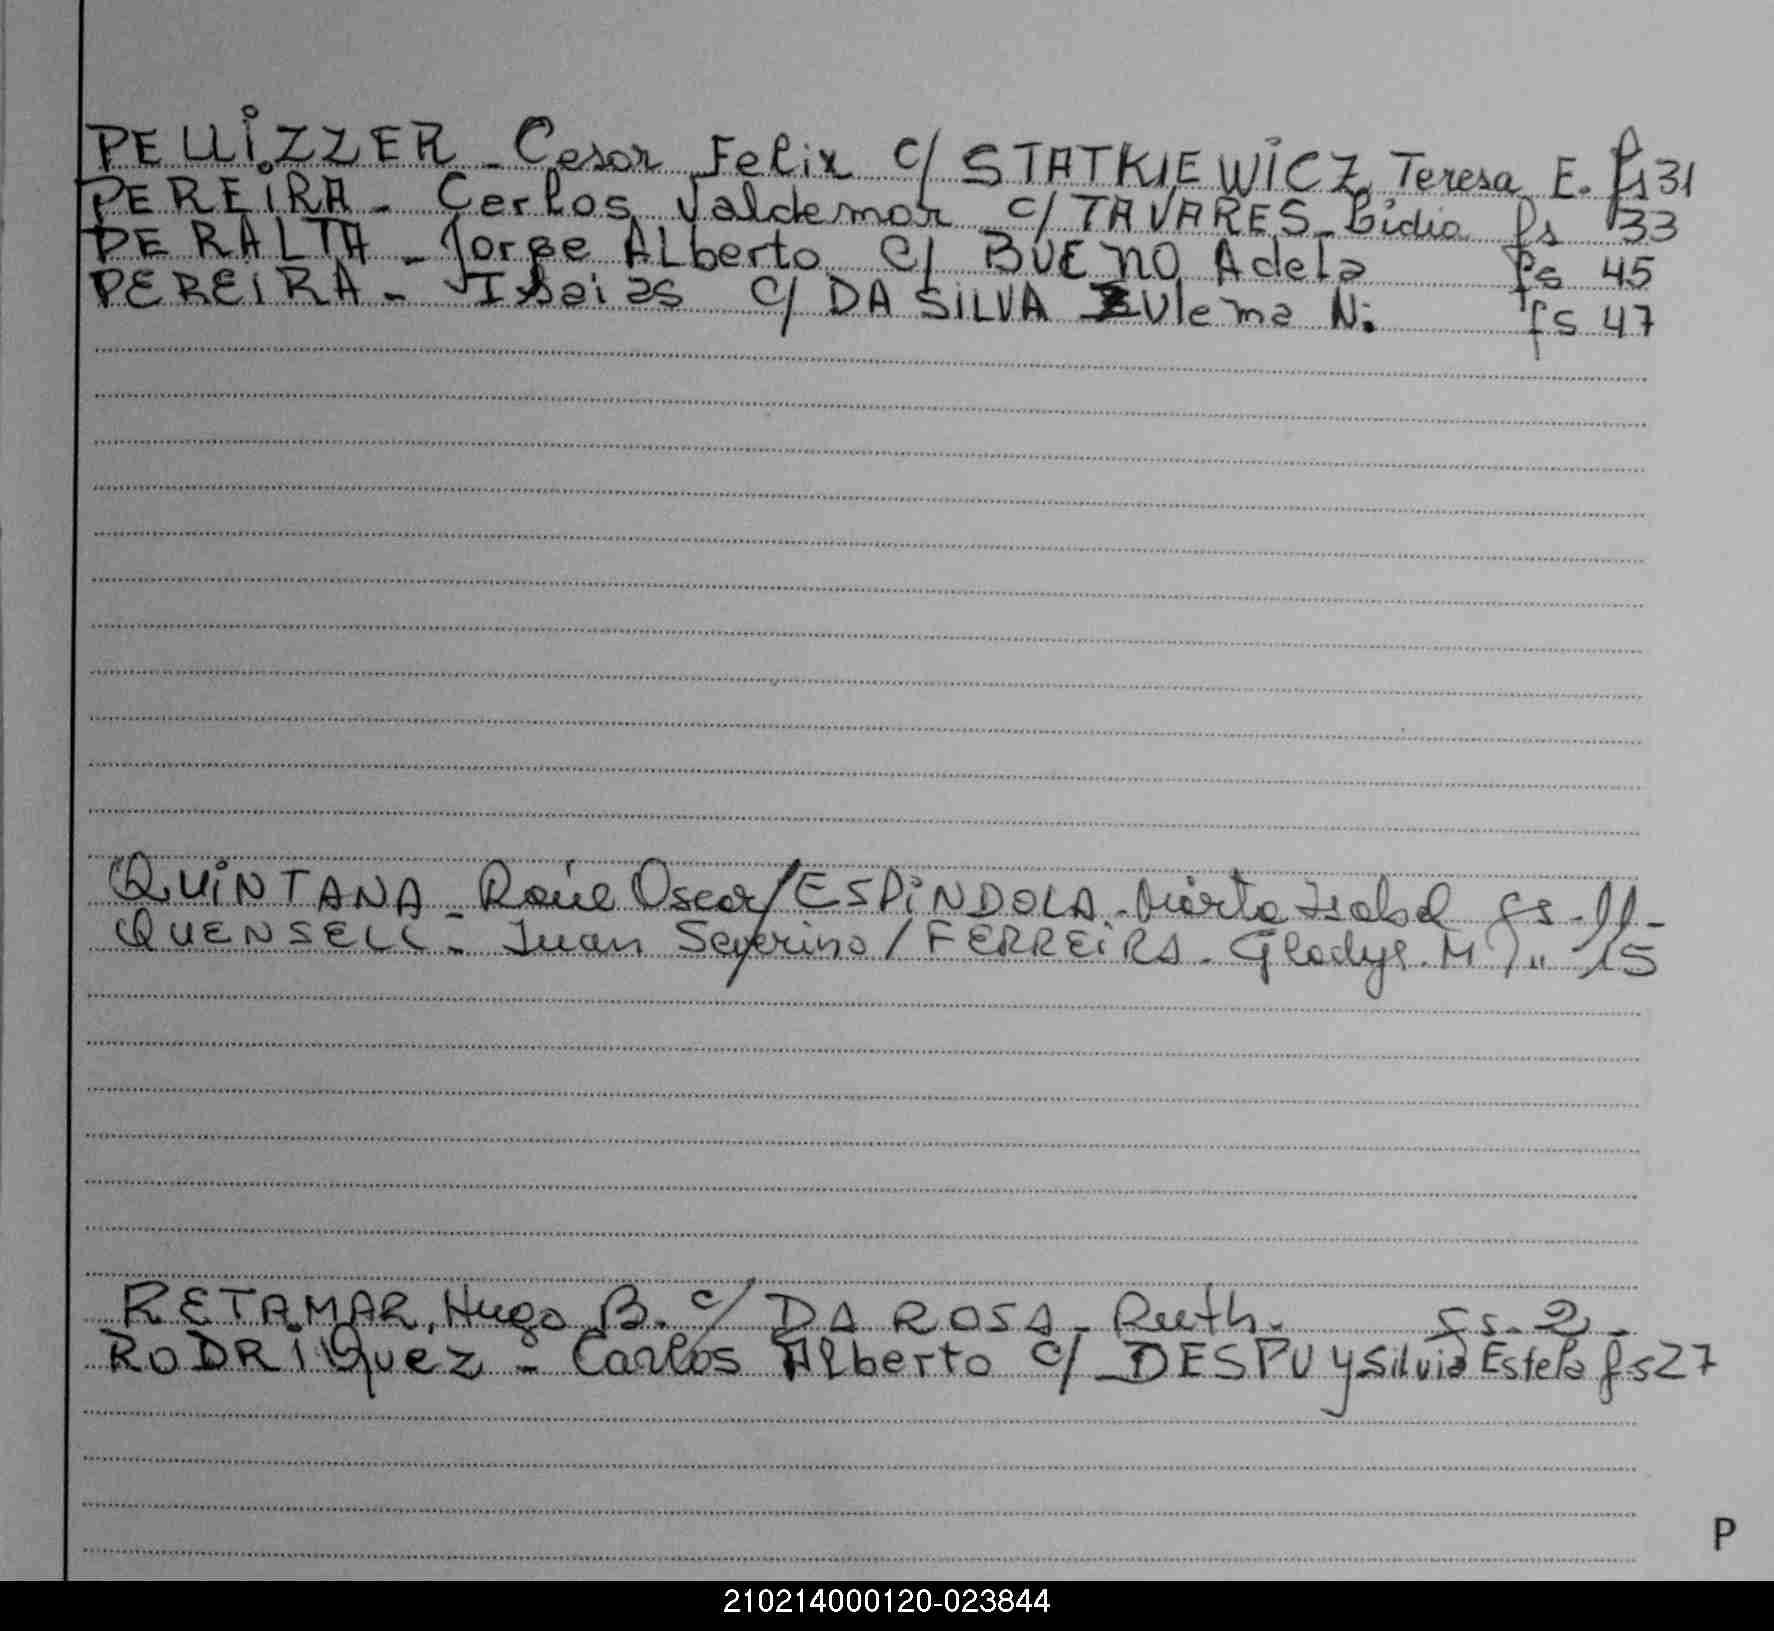 PELLiZZER - Cesar Felix c/ STATKIEWiCZ, Teresa E. fs 31
PEREiRA - Carlos Valdemar c/ TAVARES - Lidia fs 33
PERALTA - Jorge ALberto c/ BUENO Adela fs 45
PEREiRA - Isaias c/ DA SiLVA Zulema N. fs 47
QUiNTANA - Raúl Oscar/ESPiNDOLA - Mirta Isabel fs. 11 -
QUENSELL - Juan Severino/FERREiRA - Gladys. M " 15
RETAMAR, Hugo B. c/ DA ROSA - Ruth. fs. 2 -
RODRiGuez - Carlos Alberto c/ DESPUy Silvia Estela fs 27
P
210214000120-023844